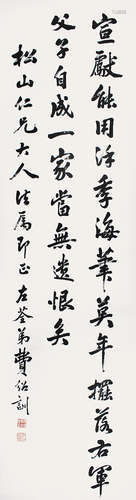 宣獻能用徐季海筆英年擺落右軍
父子自成一家當無遺恨矣
松山仁兄大人法屬即正 左荃弟費紹訓